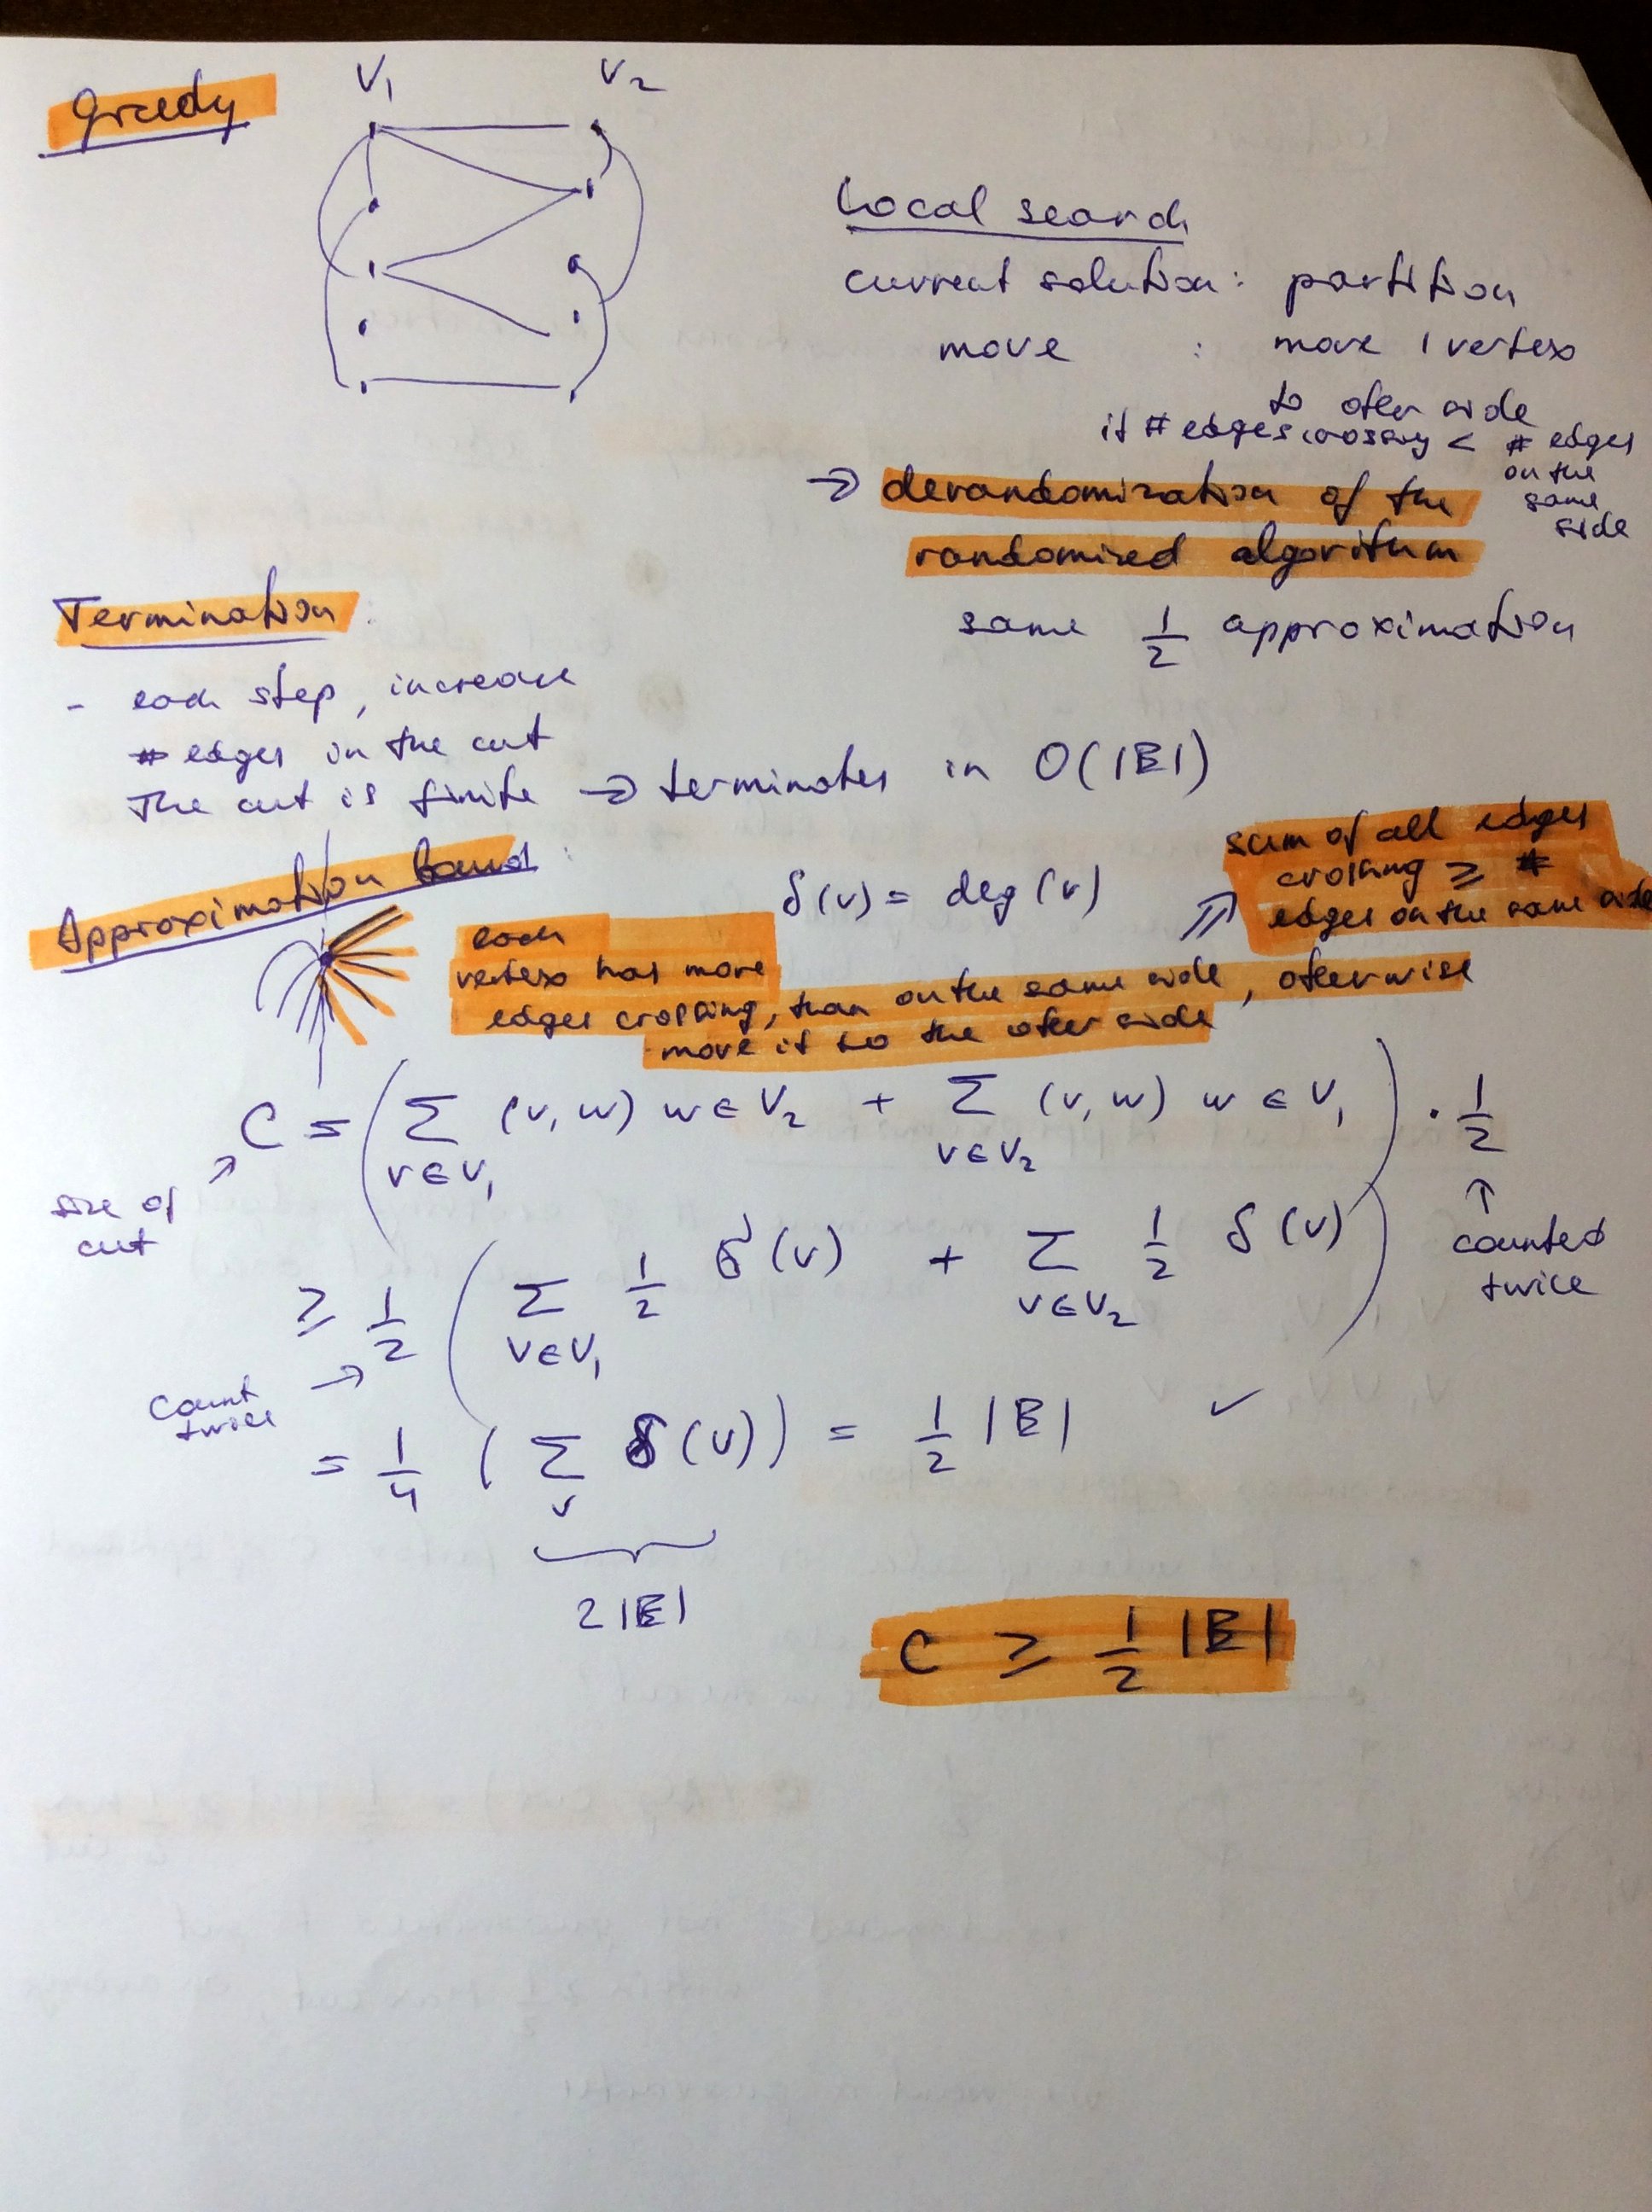 Greedy
V₁ V₂
Local search
current solution: partition
move : move 1 vertex
to other side
if # edges crossing < # edges
on the
same
side
→ derandomization of the
randomized algorithm
same 1/2 approximation
Termination:
- each step, increase
# edges in the cut
The cut is finite → terminates in O(|E|)
Approximation bound:
δ(v) = deg(v)
⇒ sum of all edges
crossing ≥ #
edges on the same side
each
vertex has more
edges crossing, than on the same side, otherwise
move it to the other side
C = ( Σ_{v∈V₁} (v,w) w∈V₂ + Σ_{v∈V₂} (v,w) w∈V₁ ) · 1/2
size of
cut
↑
counted
twice
≥ 1/2 ( Σ_{v∈V₁} 1/2 δ(v) + Σ_{v∈V₂} 1/2 δ(v) )
count →
twice
= 1/4 ( Σ_v δ(v) ) = 1/2 |E| ✓
2|E|
C ≥ 1/2 |E|